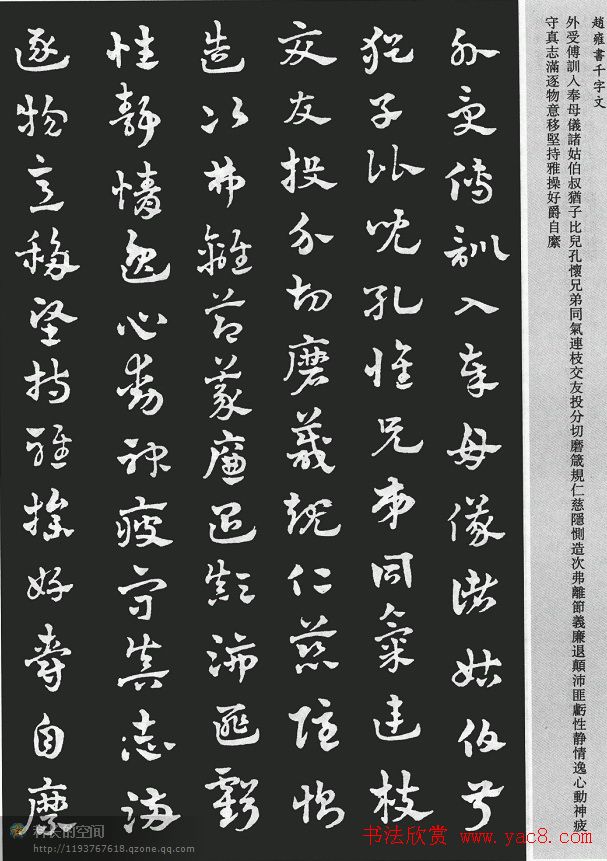 趙雍書千字文
外受傅訓入奉母儀諸姑伯叔猶子比兒孔懷兄弟同氣連枝交友投分切磨箴規仁慈隱惻造次弗離節義廉退顛沛匪虧性静情逸心動神疲
守真志滿逐物意移堅持雅操好爵自縻
外受傅訓入奉母儀諸姑伯叔
猶子比兒孔懷兄弟同氣連枝
交友投分切磨箴規仁慈隱惻
造次弗離節義廉退顛沛匪虧
性靜情逸心動神疲守真志滿
逐物意移堅持雅操好爵自縻
的空间
http://1193767618.qzone.qq.com
书法欣赏 www.yac8.com